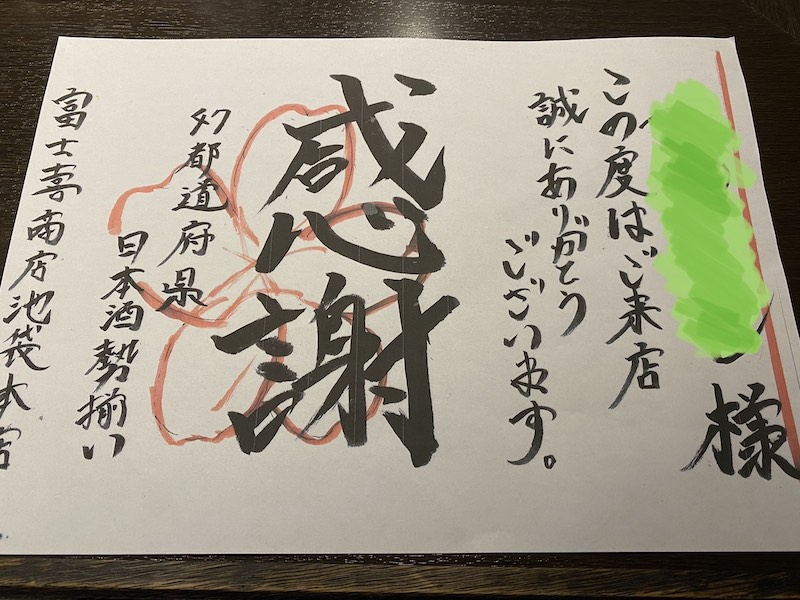 様
この度はご来店
誠にありがとう
ございます。
感謝
都道府県
日本酒勢揃い
富士喜商店池袋本店